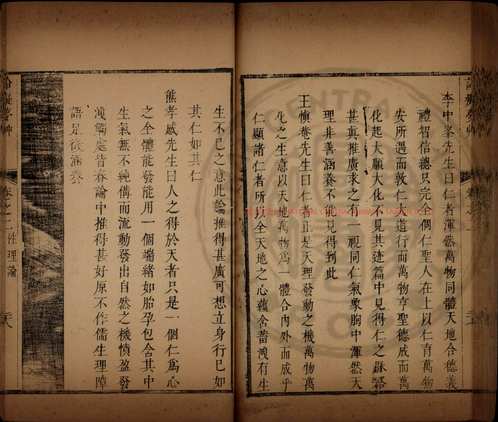 李中峯先生曰仁者渾然萬物同體天地合德義
禮智信總只完全個仁聖人在上以仁育萬物
安所遇而敦仁大道行而萬物亨聖德威而萬
化起大願大化一見其篷篇中見得仁之
甚真推廣求之有一視同仁氣象胸中渾然天
理非義涵養不能見得到此
王慎菴先生曰仁者正是天理發動之機萬物萬
化之生意以天地萬物為一體合內外而成乎
仁顯諸仁者所以全天地之心藏含畜洩有生
生不已之意此論推得甚廣可想立身行已如
其仁如其仁
熊孝感先生曰人之得於天者只是一個仁為心
之全體能發能用一個端緒如胎孕包含其中
生氣無不完備而流動發出自然之機慎盈發
淺觸處皆春論中推得甚好原不作儒生理障
語足徵涵養
卷之二 性理論